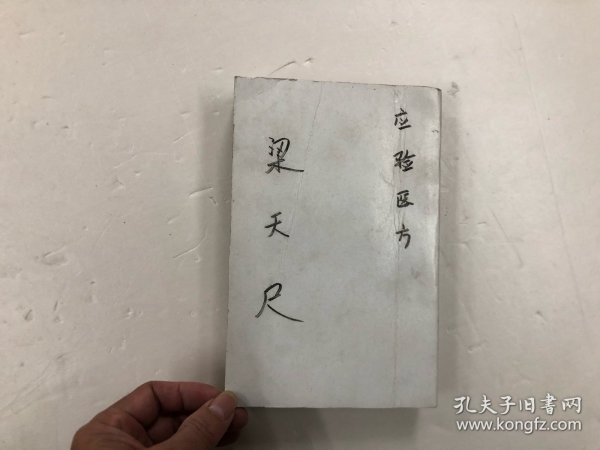 应验医方
梁天尺
孔夫子旧书网
www.kongfz.com